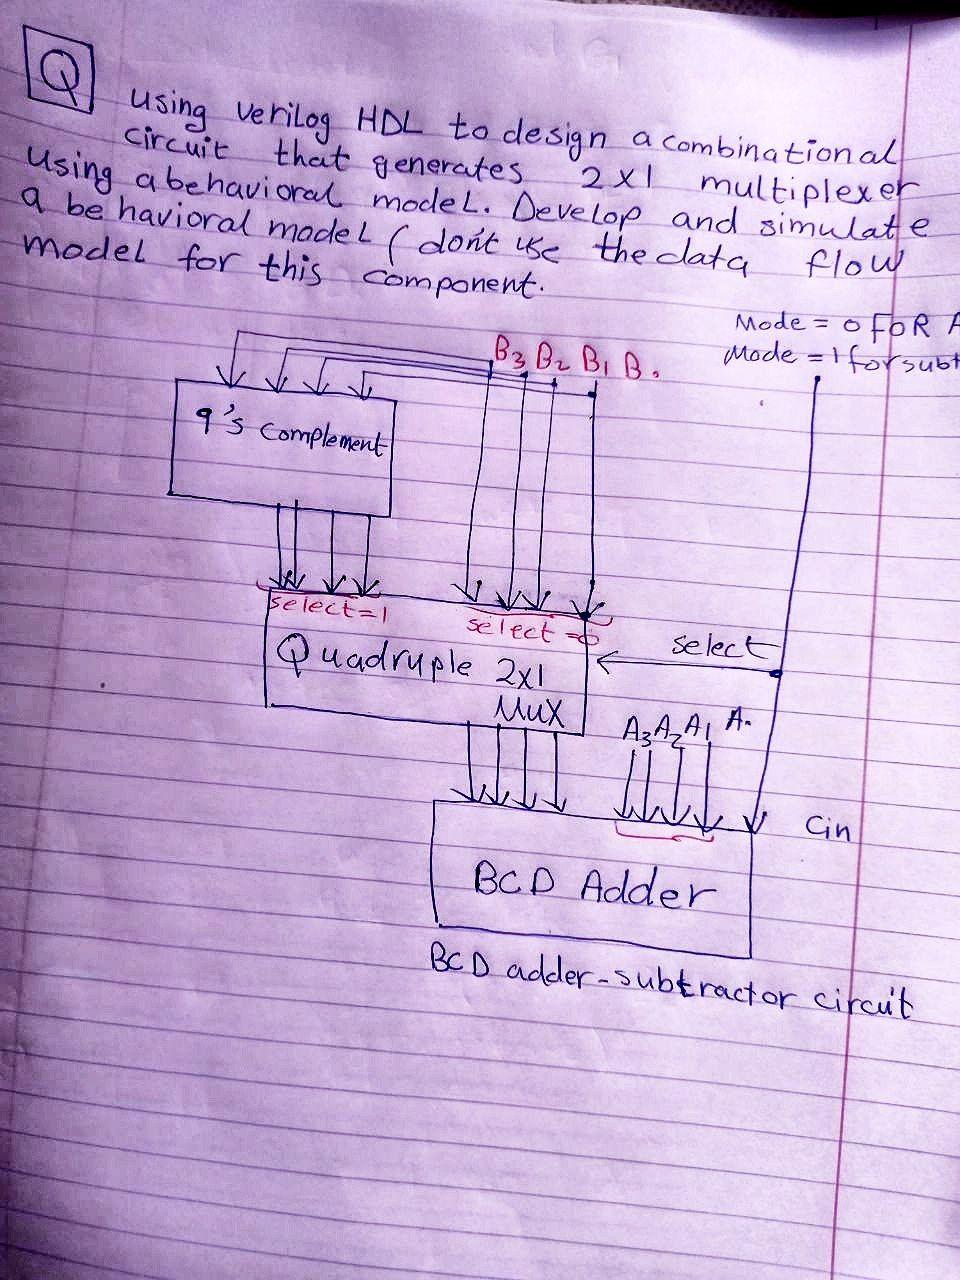 Q
using verilog HDL to design a combinational
circuit that generates 2x1 multiplexer
using a behavioral model. Develop and simulate
a behavioral model (don't use the data flow
model for this component.
Mode = 0 FOR A
Mode = 1 for subt
B3 B2 B1 B.
9's complement
select=1
select=0
Quadruple 2x1
MUX
select
A3 A2 A1 A.
Cin
BCD Adder
BCD adder-subtractor circuit